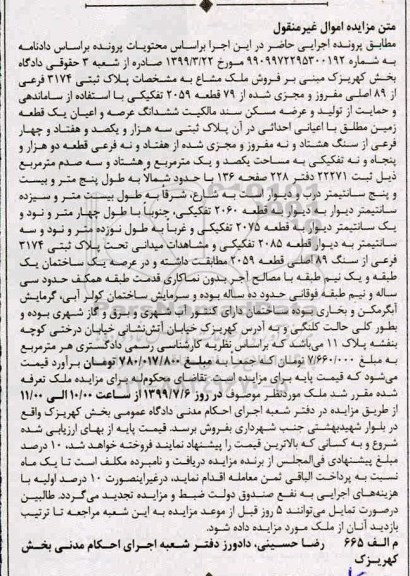 متن مزایده اموال غیرمنقول
مطابق پرونده اجرایی حاضر در این اجرا براساس محتویات پرونده براساس دادنامه
به شماره ۹۹۰۹۹۷۲۲۹۵۳۰۰۱۹۲ مورخ ۱۳۹۹/۳/۲۲ صادره از شعبه ۳ حقوقی دادگاه
بخش کهریزک مبنی بر فروش ملک مشاع به مشخصات پلاک ثبتی ۳۱۷۴ فرعی
از ۸۹ اصلی مفروز و مجزی شده از ۷۹ قطعه ۲۰۵۹ تفکیکی با استفاده از ساماندهی
و حمایت از تولید و عرضه مسکن سند مالکیت ششدانگ عرصه و اعیان یک قطعه
زمین مطلق با اعیانی احداثی در آن پلاک ثبتی سه هزار و یکصد و هفتاد و چهار
فرعی از سنگ هشتاد و نه مفروز و مجزی شده از هفتاد و نه فرعی قطعه دو هزار و
پنجاه و نه تفکیکی به مساحت یکصد و یک مترمربع و هشتاد و سه صدم مترمربع
ذیل ثبت ۲۲۲۷۱ دفتر ۲۲۸ صفحه ۱۳۶ با حدود شمالاً به طول پنج متر و بیست
و پنج سانتیمتر دیوار است به شارع، شرقاً به طول بیست متر و سیزده
سانتیمتر دیوار به دیوار به قطعه ۲۰۶۰ تفکیکی، جنوباً با طول چهار متر و نود و
یک سانتیمتر دیوار به قطعه ۲۰۷۵ تفکیکی و غرباً به طول نوزده متر و نود و سه
سانتیمتر به دیوار قطعه ۲۰۸۵ تفکیکی و مشاهدات میدانی تحت پلاک ثبتی ۳۱۷۴
فرعی از سنگ ۸۹ اصلی قطعه ۲۰۵۹ مطابقت داشته و در عرصه یک ساختمان یک
طبقه و یک نیم طبقه با مصالح آجر بدون نماکاری قدمت طبقه همکف حدود سی
ساله و نیم طبقه فوقانی حدود ده ساله بوده و سرمایش ساختمان کولر آبی، گرمایش
آبگرمکن و بخاری بوده ساختمان دارای کنتور آب شهری و برق و گاز شهری بوده و
بطور کلی حالت کلنگی و به آدرس کهریزک خیابان آتش‌نشانی خیابان درختی کوچه
بنفشه پلاک ۱۱ می‌باشد که براساس نظریه کارشناسی رسمی دادگستری هر مترمربع
به مبلغ ۷/۶۶۰/۰۰۰ تومان که جمعاً به مبلغ ۷۸۰/۰۱۷/۸۰۰ تومان برآورد قیمت
می‌شود که قیمت پایه برای مزایده می‌باشد تقاضای محکوم‌له برای مزایده ملک تعرفه
شده مقرر شد ملک موردنظر موصوف در روز ۱۳۹۹/۷/۶ از ساعت ۱۰/۰۰ الی ۱۱/۰۰
از طریق مزایده در دفتر شعبه اجرای احکام مدنی دادگاه عمومی بخش کهریزک واقع
در بلوار شهیدبهشتی جنب شهرداری بفروش برسد. قیمت پایه از بهای ارزیابی شده
شروع و به کسانی که بالاترین قیمت را پیشنهاد نمایند فروخته خواهد شد، ۱۰ درصد
مبلغ پیشنهادی فی‌المجلس از برنده مزایده دریافت و نامبرده مکلف است تا یک ماه
نسبت به پرداخت الباقی ثمن معامله اقدام نماید، درغیراینصورت ۱۰ درصد اولیه با
هزینه‌های اجرایی به نفع صندوق دولت ضبط و مزایده تجدید می‌گردد. طالبین
درصورت تمایل می‌توانند ۵ روز قبل از موعد مزایده به این شعبه مراجعه تا ترتیب
بازدید آنان از ملک مورد مزایده داده شود.
م الف ۶۶۵ رضا حسینی، دادورز دفتر شعبه اجرای احکام مدنی بخش
کهریزک